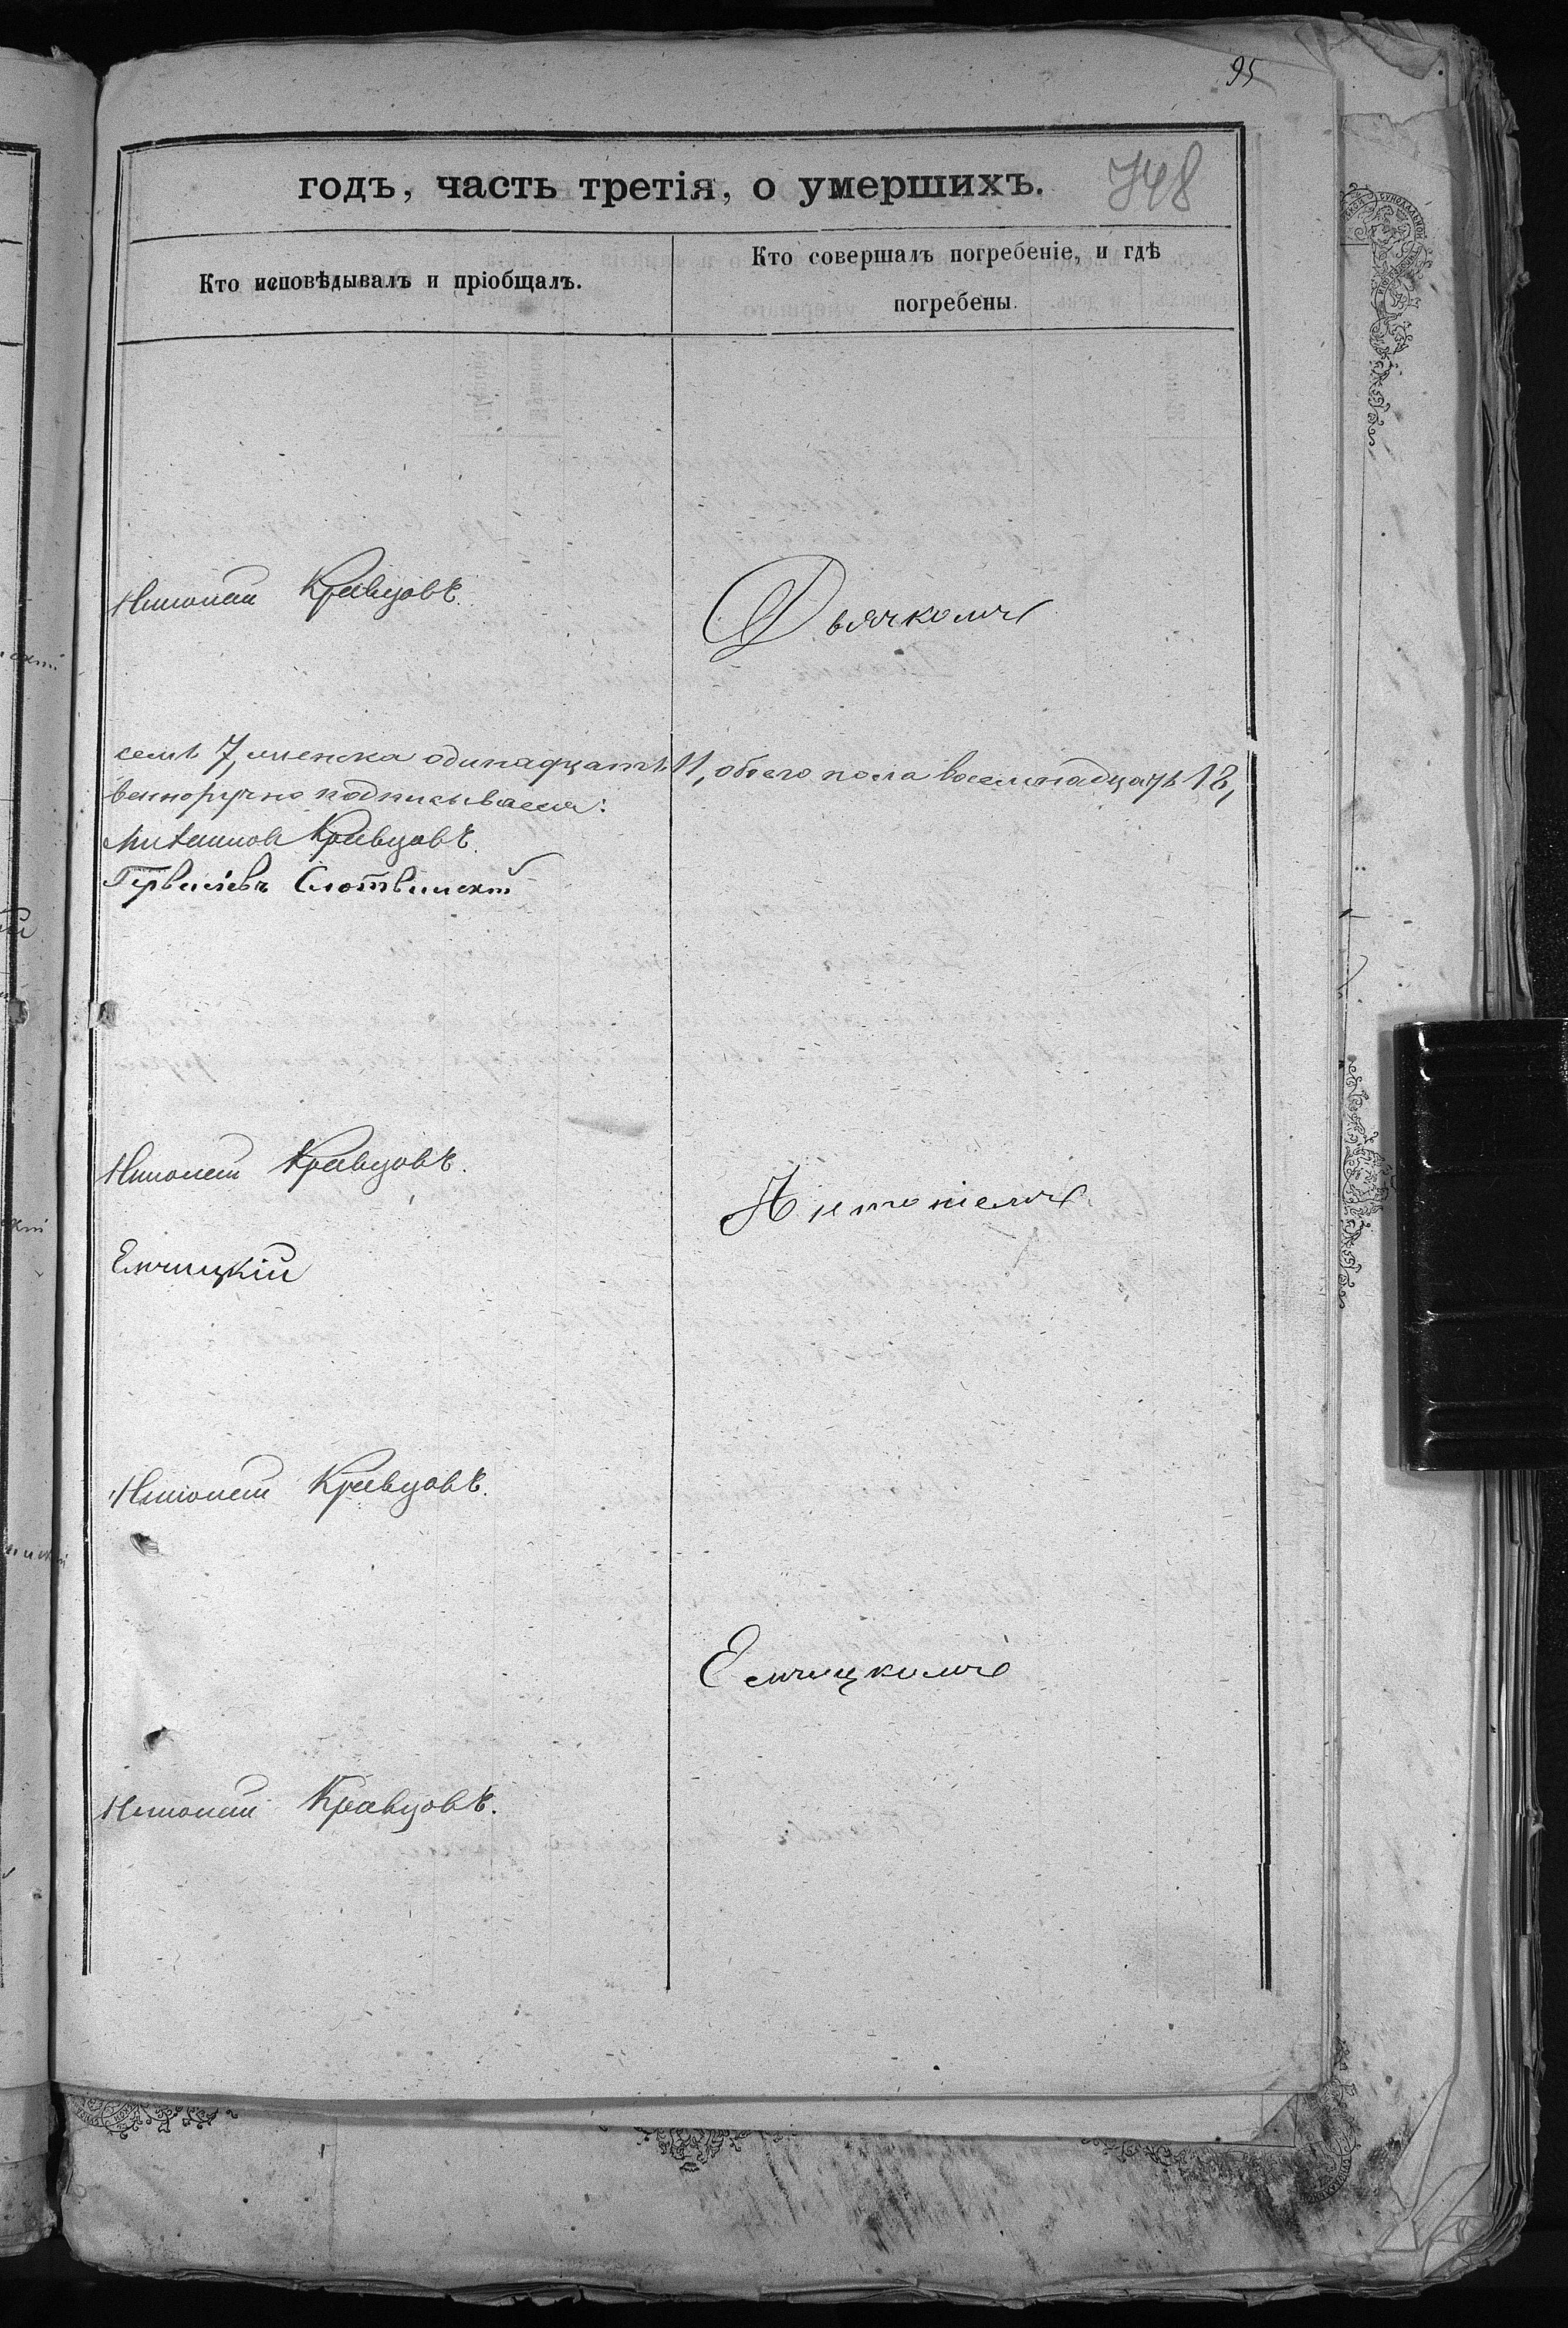 95
годъ, часть третія, о умершихъ.
748
Кто исповѣдывалъ и пріобщалъ.
Кто совершалъ погребеніе, и гдѣ
погребены.
Николай Кравцовъ.
Дьячкомъ
семь 7, женска одинадцать 11, обоего пола восемнадцать 18,
венноручно подписываемся:
Михаилов Кравцовъ.
Слотвинскій
Николай Кравцовъ.
Емчицкій
Николай Кравцовъ.
Емчицкомъ
Николай Кравцовъ.